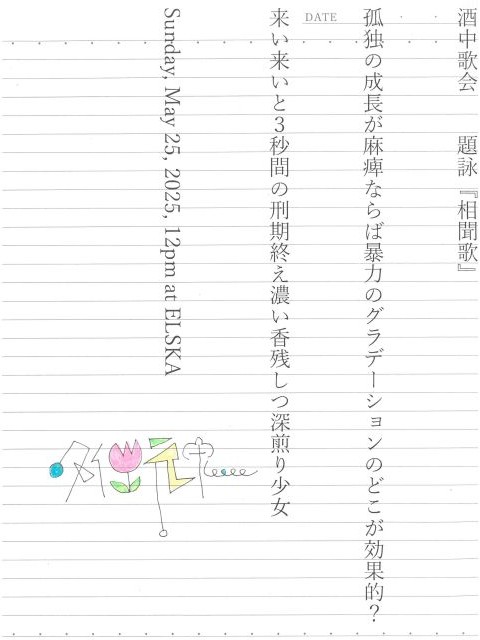 酒中歌会　題詠『相聞歌』
DATE
孤独の成長が麻痺ならば暴力のグラデーションのどこが効果的?
来い来いと3秒間の刑期終え濃い香残しつ深煎り少女
Sunday, May 25, 2025, 12pm at ELSKA